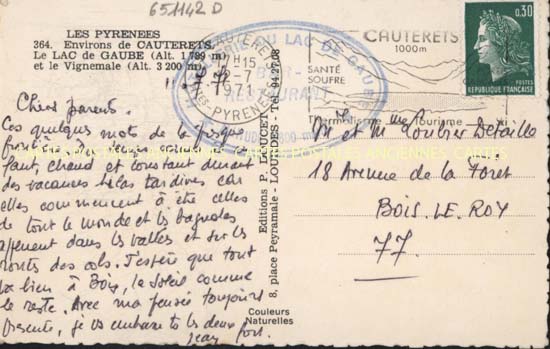 651142 D
LES PYRENEES
364. Environs de CAUTERETS.
Le LAC de GAUBE (Alt. 1 789 m)
et le Vignemale (Alt. 3 200 m)
CAUTERETS
15 H
2-7
1971
Htes PYRENEES
DU LAC DE GAUBE
BAR
RESTAURANT
CAUTERETS
1000m
SANTÉ
SOUFRE
Thermalisme Tourisme
0,30
POSTES
REPUBLIQUE FRANÇAISE
Chers parents.
Ces quelques mots de la presque
frontière
faut, chaud et tout au durant
des vacances hélas tardives car
elles commencent à être celles
de tout le monde et les bagnoles
dans les vallées et sur les
routes des cols. J'espère que tout
va bien à Bois, le soleil comme
le reste. Avec ma pensée toujours
présente, je vs embrasse ts les deux
Jean fort.
Editions P. DOUCET
8, place Peyramale - LOURDES - Tel. 94.27.08
Couleurs
Naturelles
M et Mme Loubier Detaille
18 Avenue de la Foret
BOIS. LE. ROY
77.
CARTES POSTALES ANCIENNES